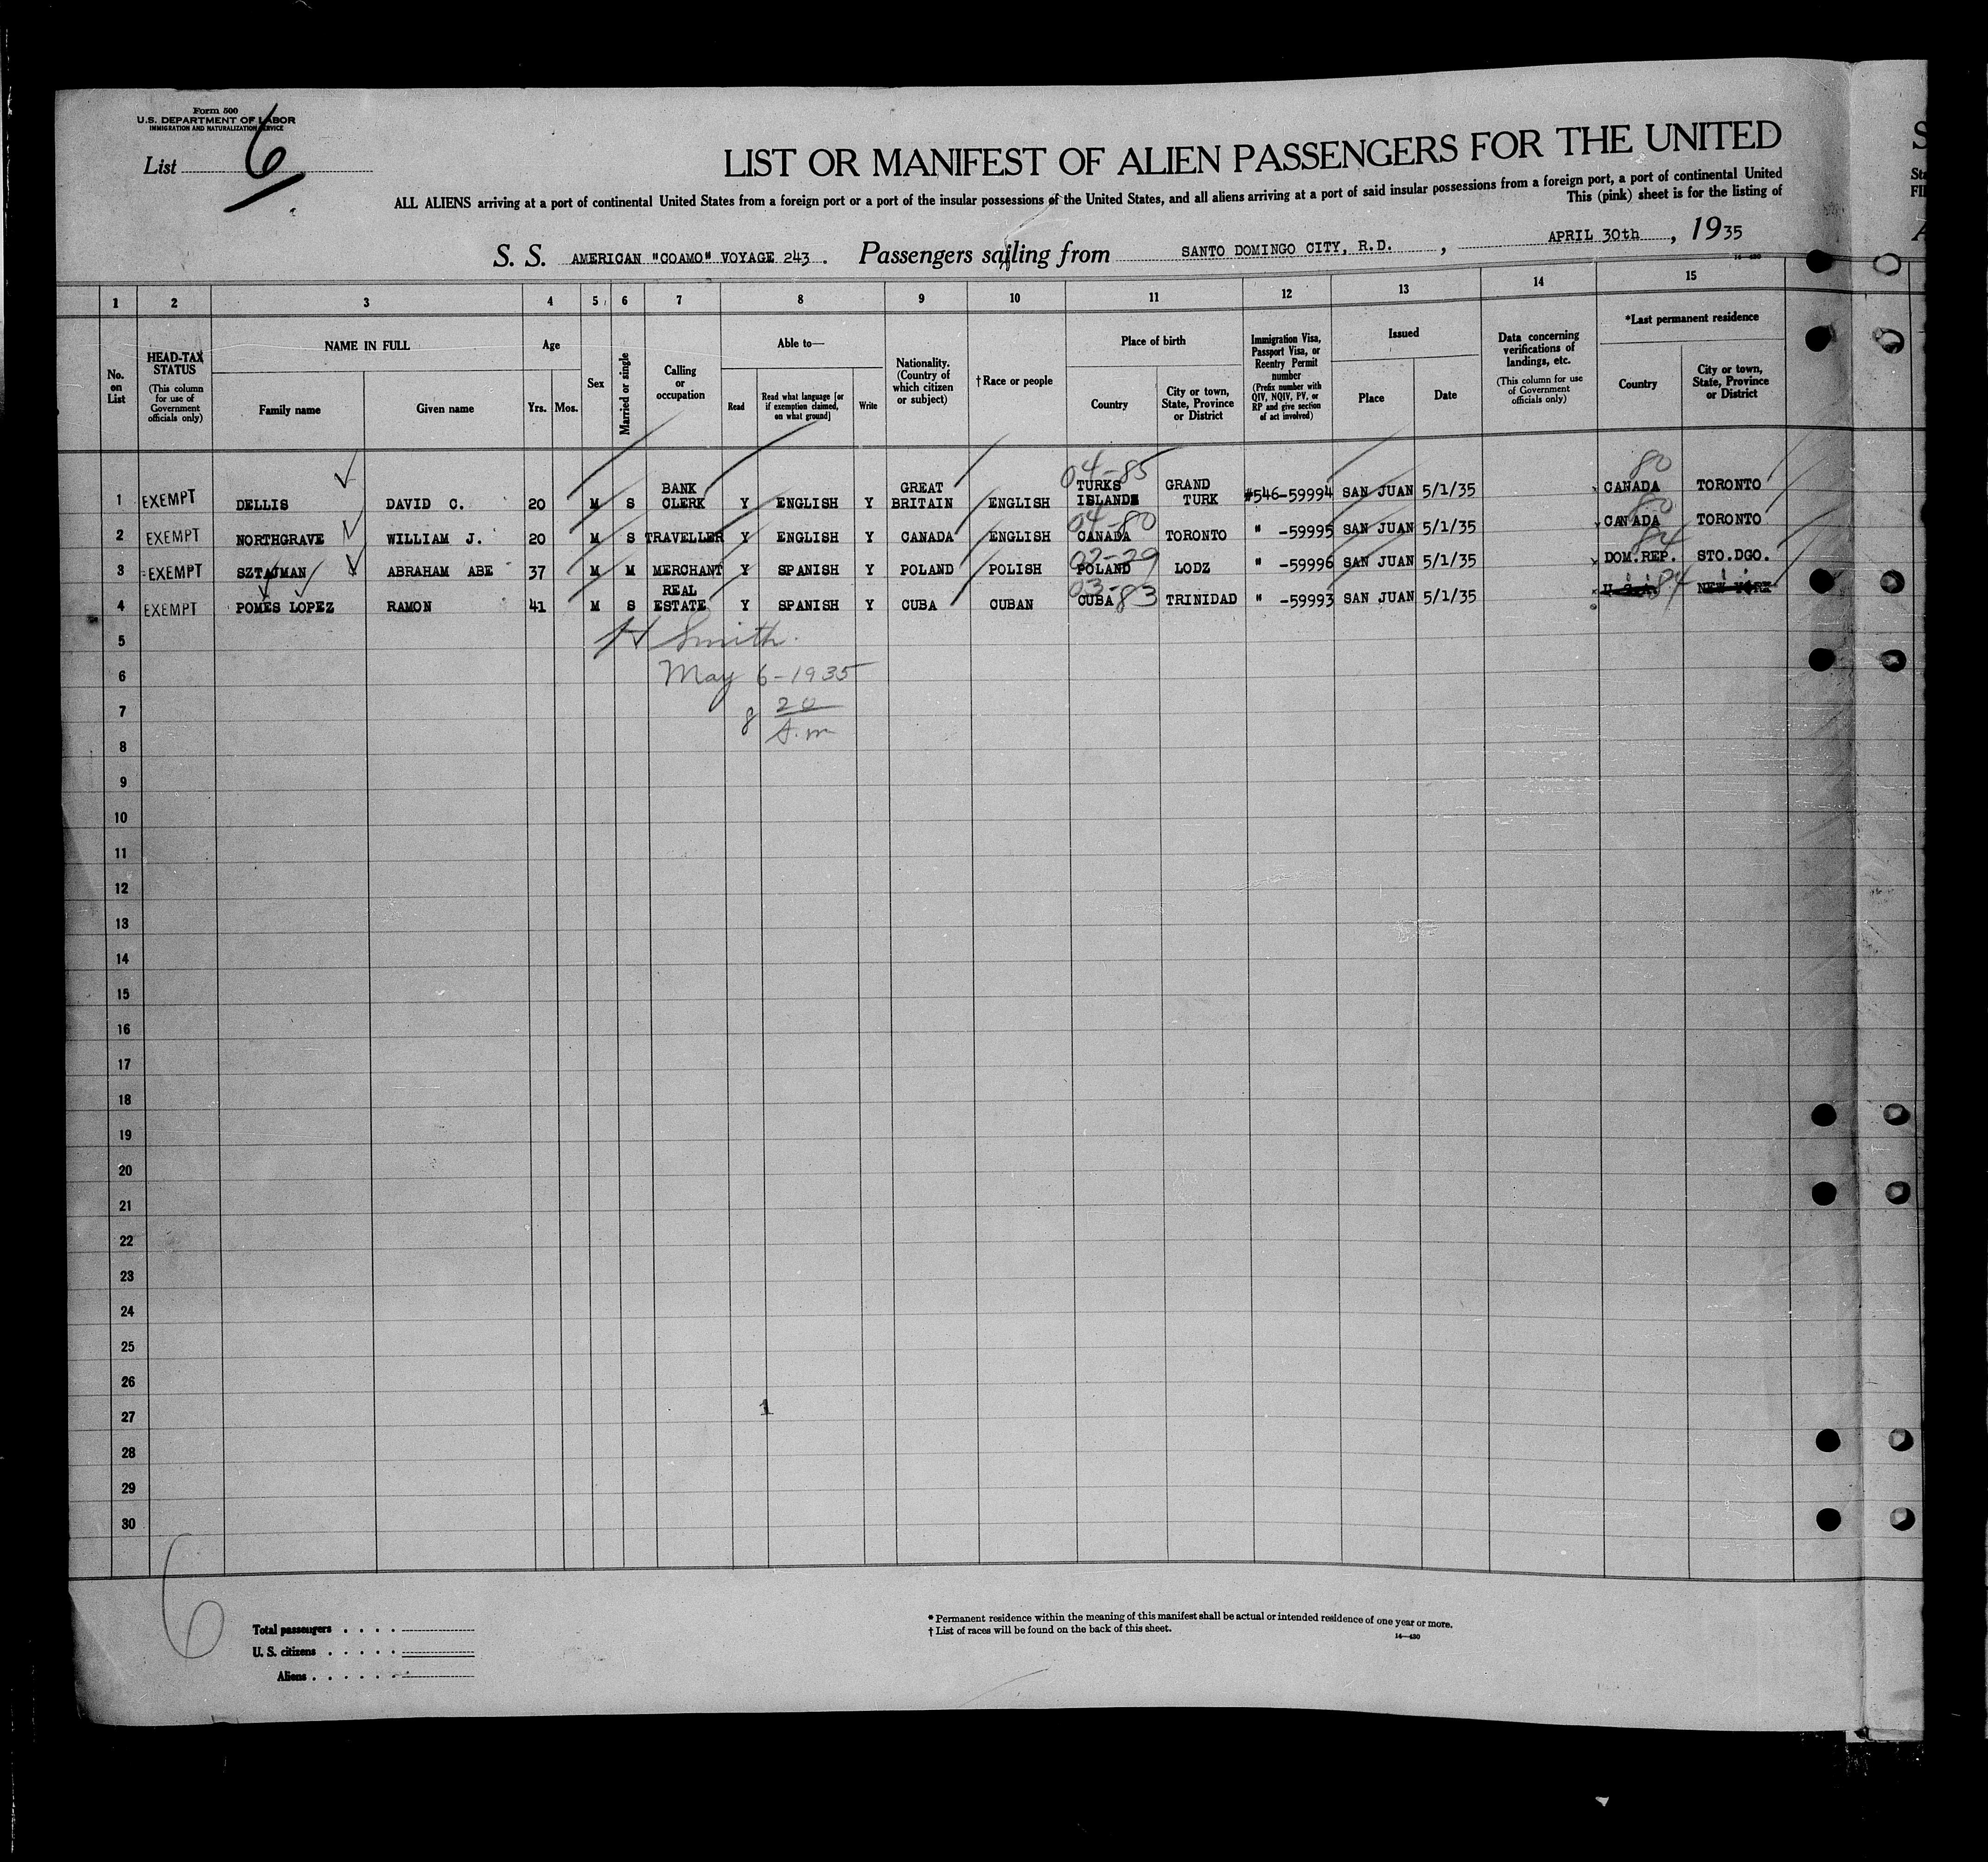 Form 500
U.S. DEPARTMENT OF LABOR
IMMIGRATION AND NATURALIZATION SERVICE
List 6
LIST OR MANIFEST OF ALIEN PASSENGERS FOR THE UNITED
ALL ALIENS arriving at a port of continental United States from a foreign port or a port of the insular possessions of the United States, and all aliens arriving at a port of said insular possessions from a foreign port, a port of continental United
This (pink) sheet is for the listing of
S. S. AMERICAN "COAMO" VOYAGE 243. Passengers sailing from SANTO DOMINGO CITY, R.D., APRIL 30th, 1935
1 2 3 4 5 6 7 8 9 10 11 12 13 14 15
No. on List
HEAD-TAX STATUS (This column for use of Government officials only)
NAME IN FULL
Family name
Given name
Age
Yrs. Mos.
Sex
Married or single
Calling or occupation
Able to—
Read
Read what language [or if exemption claimed, on what ground]
Write
Nationality. (Country of which citizen or subject)
†Race or people
Place of birth
Country
City or town, State, Province or District
Immigration Visa, Passport Visa, or Reentry Permit number (Prefix number with QIV, NQIV, PV, or RP and give section of act involved)
Issued
Place
Date
Data concerning verifications of landings, etc. (This column for use of Government officials only)
*Last permanent residence
Country
City or town, State, Province or District
04-85 80
1 EXEMPT DELLIS DAVID C. 20 M S BANK CLERK Y ENGLISH Y GREAT BRITAIN ENGLISH TURKS ISLANDS GRAND TURK #546-59994 SAN JUAN 5/1/35 CANADA TORONTO
04-80 80
2 EXEMPT NORTHGRAVE WILLIAM J. 20 M S TRAVELLER Y ENGLISH Y CANADA ENGLISH CANADA TORONTO " -59995 SAN JUAN 5/1/35 CANADA TORONTO
02-29 84
3 EXEMPT SZTAJMAN ABRAHAM ABE 37 M M MERCHANT Y SPANISH Y POLAND POLISH POLAND LODZ " -59996 SAN JUAN 5/1/35 DOM.REP. STO.DGO.
03-83 84
4 EXEMPT POMES LOPEZ RAMON 41 M S REAL ESTATE Y SPANISH Y CUBA CUBAN CUBA TRINIDAD " -59993 SAN JUAN 5/1/35 U.S.A. NEW YORK
5 H Smith.
6 May 6-1935
7 8 20
8 A.m
9
10
11
12
13
14
15
16
17
18
19
20
21
22
23
24
25
26
27 1
28
29
30
6
Total passengers
U. S. citizens
Aliens
* Permanent residence within the meaning of this manifest shall be actual or intended residence of one year or more.
† List of races will be found on the back of this sheet.
14—430